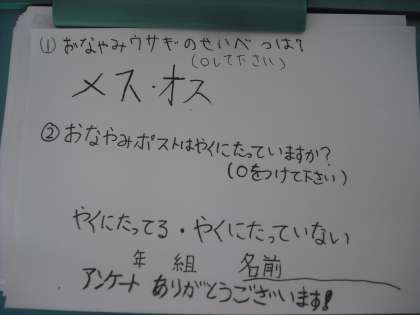 ① おなやみウサギのせいべつは?
(○して下さい)
メス・オス
② おなやみポストはやくにたっていますか?
(○をつけて下さい)
やくにたってる・やくにたっていない
年 組 名前
アンケート ありがとうございます!